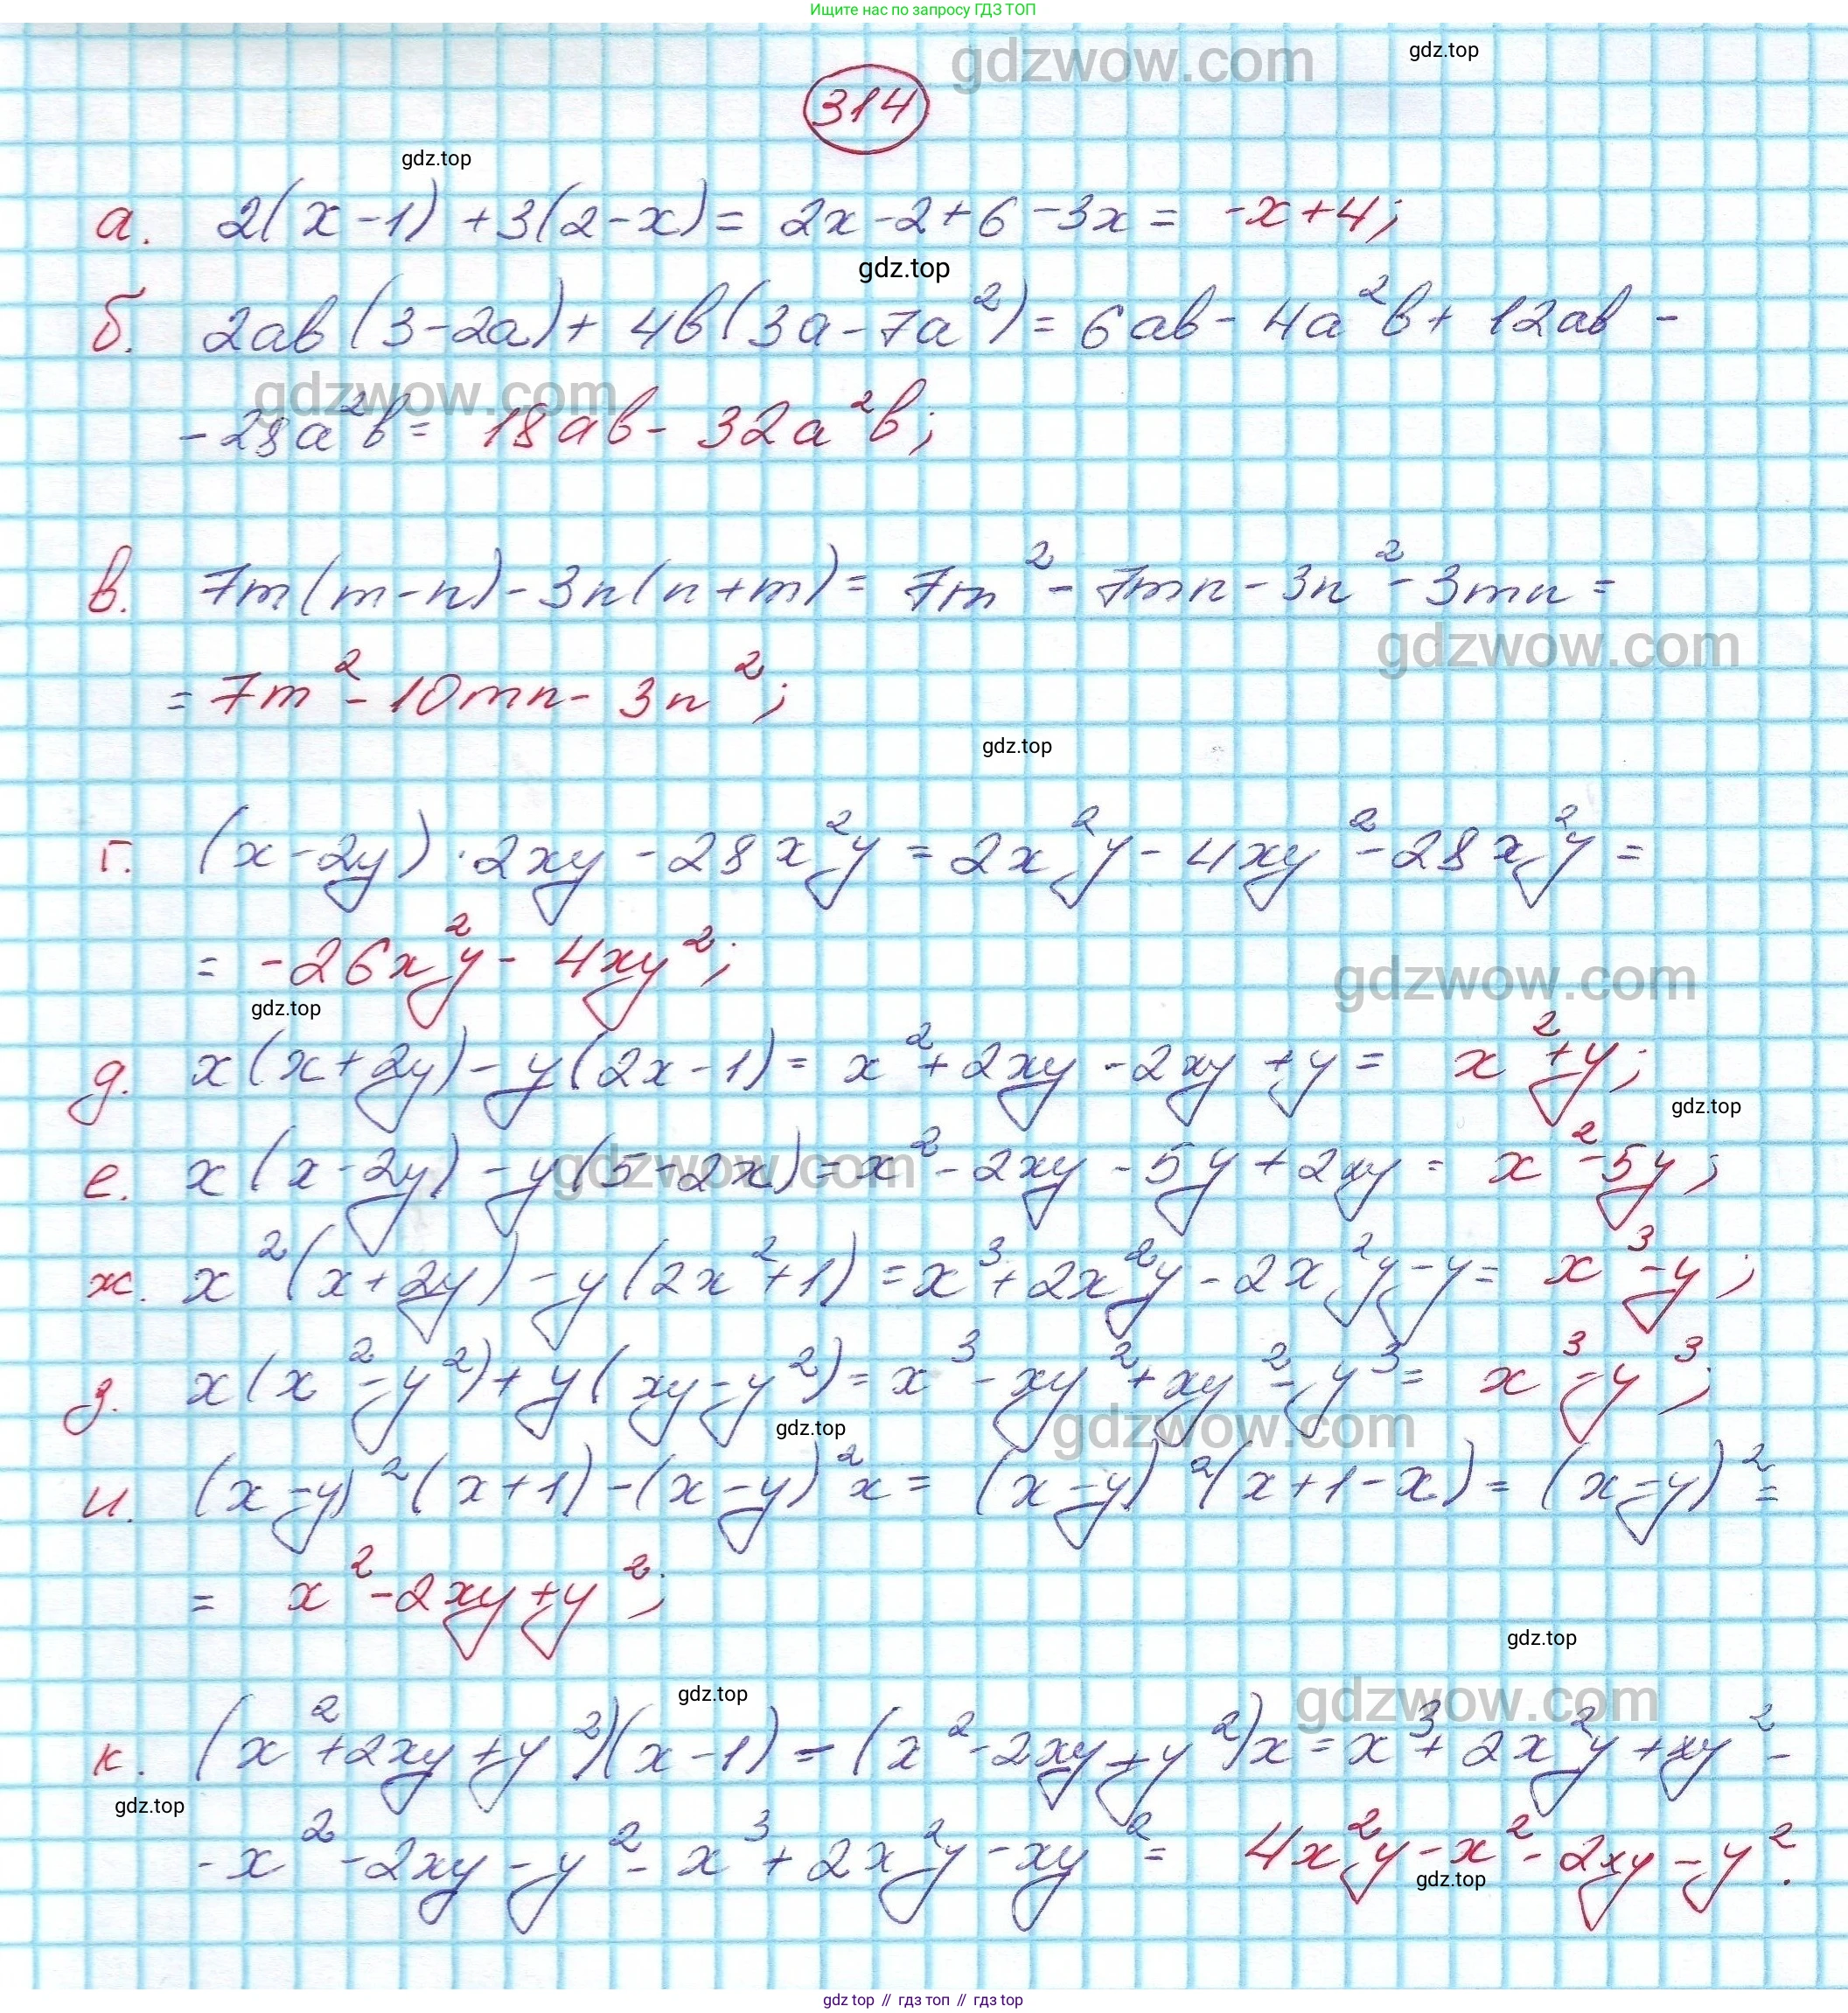 Ищите нас по запросу ГДЗ ТОП
gdzwow.com
gdz.top
314
gdz.top
а. 2(x-1)+3(2-x)= 2x-2+6-3x= -x+4;
gdz.top
б. 2ab(3-2a)+ 4b(3a-7a²)= 6ab- 4a²b+ 12ab -
gdzwow.com
-28a²b= 18ab- 32a²b;
в. 7m(m-n)-3n(n+m)= 7m²- 7mn-3n²-3mn=
gdzwow.com
= 7m²-10mn- 3n²;
gdz.top
г. (x-2y)·2xy-28x²y=2x²y-4xy²-28x²y=
= -26x²y- 4xy²;
gdzwow.com
gdz.top
д. x(x+2y)-y(2x-1)= x²+2xy-2xy+y= x²+y;
gdz.top
е. x(x-2y)-y(5-2x)=x²-2xy-5y+2xy= x²-5y;
gdzwow.com
ж. x²(x+2y)-y(2x²+1)=x³+2x²y-2x²y-y= x³-y;
з. x(x²-y²)+y(xy-y²)=x³-xy²+xy²-y³= x³-y³;
gdz.top
gdzwow.com
и. (x-y)²(x+1)-(x-y)²x= (x-y)²(x+1-x)=(x-y)²=
= x²-2xy+y²;
gdz.top
gdz.top
gdzwow.com
к. (x²+2xy+y²)(x-1)-(x²-2xy+y²)x=x³+2x²y+xy²-
gdz.top
-x²-2xy-y²-x³+2x²y-xy²= 4x²y-x²-2xy-y².
gdz.top
gdz top // гдз топ // гдз top